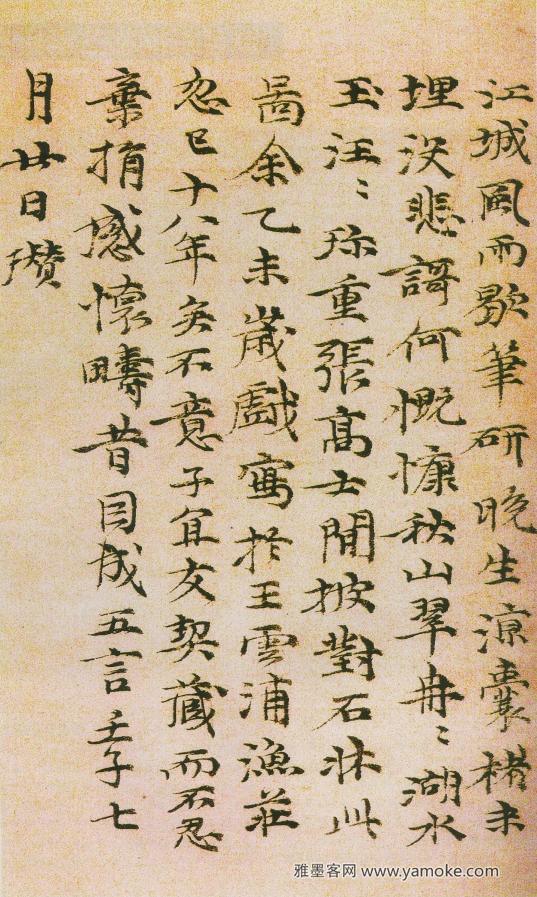 江城風雨歇筆研晚生涼囊楮未
埋沒悲謌何慨慷秋山翠冉〻湖水
玉汪〻珎重張高士閒披對石牀此
啚余乙未歲戲寫於王雲浦漁莊
忽已十八年矣不意子宜友契藏而不忍
棄捐感懷疇昔因成五言壬子七
月廿日瓚
雅墨客网 www.yamoke.com